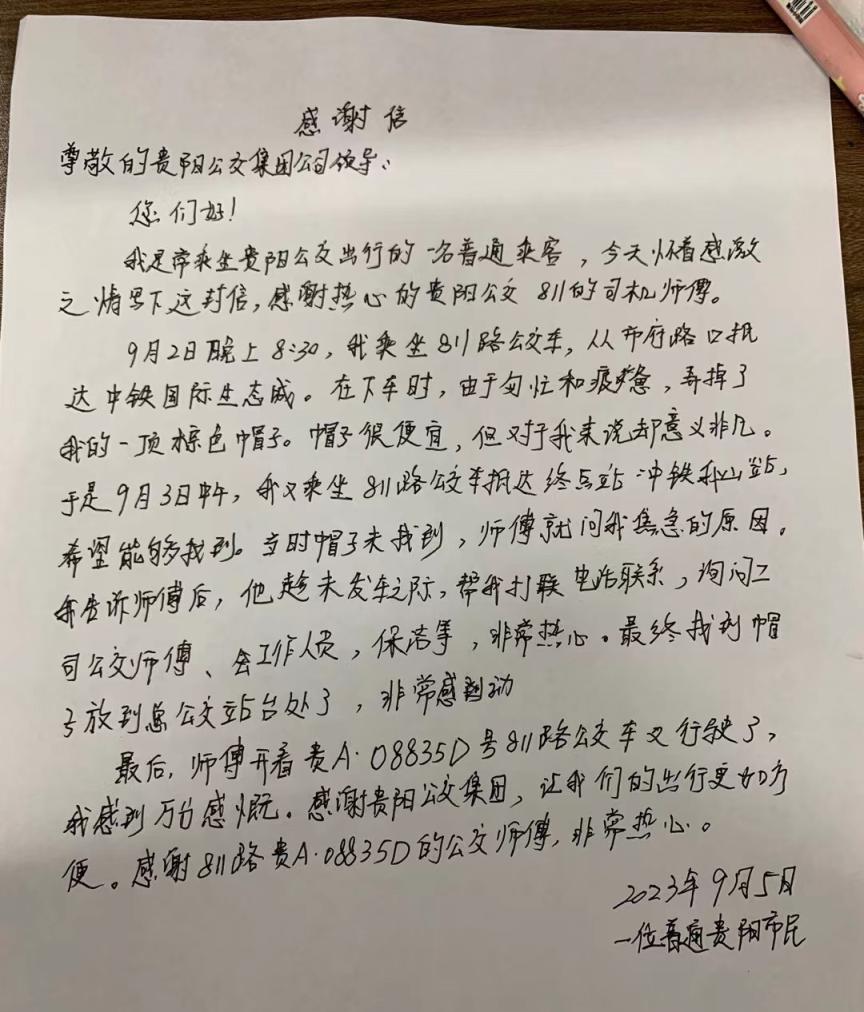 感谢信
尊敬的贵阳公交集团公司领导：
您们好！
我是常乘坐贵阳公交出行的一名普通乘客，今天怀着感激
之情写下这封信，感谢热心的贵阳公交811的司机师傅。
9月2日晚上8:30，我乘坐811路公交车，从市府路口抵
达中铁国际生态城。在下车时，由于匆忙和疲惫，弄掉了
我的一顶棕色帽子。帽子很便宜，但对于我来说却意义非凡。
于是9月3日中午，我又乘坐811路公交车抵达终点站中铁我山站，
希望能够找到。当时帽子未找到，师傅就问我焦急的原因。
我告诉师傅后，他趁未发车之际，帮我打联电话联系，询问二
司公交师傅、会工作人员，保洁等，非常热心。最终找到帽
子放到总公交站台处了，非常感到动
最后，师傅开着贵A·08835D号811路公交车又行驶了，
我感到万分感慨。感谢贵阳公交集团，让我们的出行更加方
便。感谢811路贵A·08835D的公交师傅，非常热心。
2023年9月5日
一位普通贵阳市民